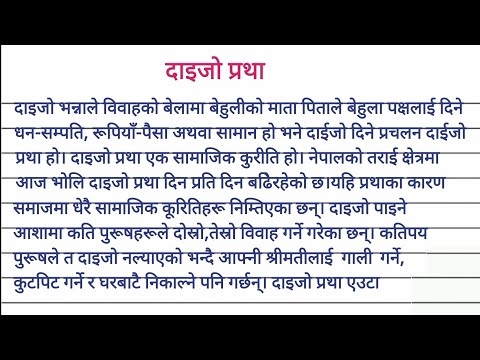 दाइजो प्रथा
दाइजो भन्नाले विवाहको बेलामा बेहुलीको माता पिताले बेहुला पक्षलाई दिने
धन-सम्पति, रूपियाँ-पैसा अथवा सामान हो भने दाईजो दिने प्रचलन दाईजो
प्रथा हो। दाइजो प्रथा एक सामाजिक कुरीति हो। नेपालको तराई क्षेत्रमा
आज भोलि दाइजो प्रथा दिन प्रति दिन बढिरहेको छ।यहि प्रथाका कारण
समाजमा धेरै सामाजिक कूरितिहरू निम्तिएका छन्। दाइजो पाइने
आशामा कति पुरूषहरूले दोस्रो,तेस्रो विवाह गर्ने गरेका छन्। कतिपय
पुरूषले त दाइजो नल्याएको भन्दै आफ्नी श्रीमतीलाई गाली गर्ने,
कुटपिट गर्ने र घरबाटै निकाल्ने पनि गर्छन्। दाइजो प्रथा एउटा